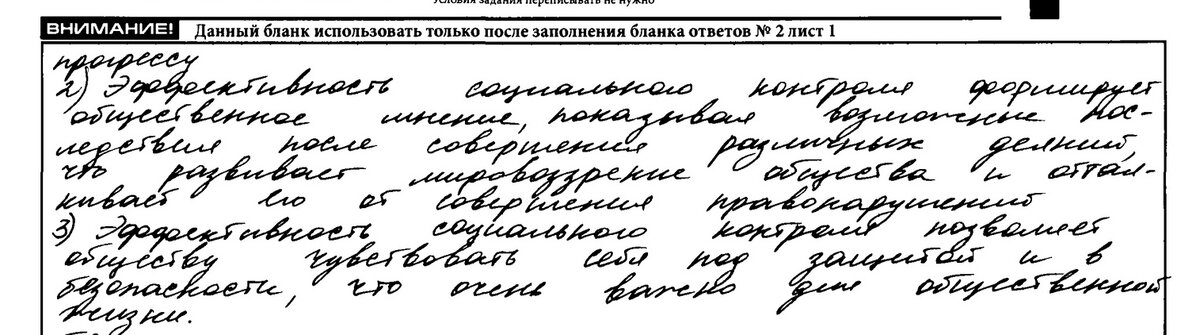 Условия задания переписывать не нужно
ВНИМАНИЕ! Данный бланк использовать только после заполнения бланка ответов № 2 лист 1
прогрессу
2) Эффективность социального контроля формирует
общественное мнение, показывая возможные пос-
ледствия после совершения различных деяний,
что развивает мировоззрение общества и оттал-
кивает его от совершения правонарушений
3) Эффективность социального контроля позволяет
обществу чувствовать себя под защитой и в
безопасности, что очень важно для общественной
жизни.